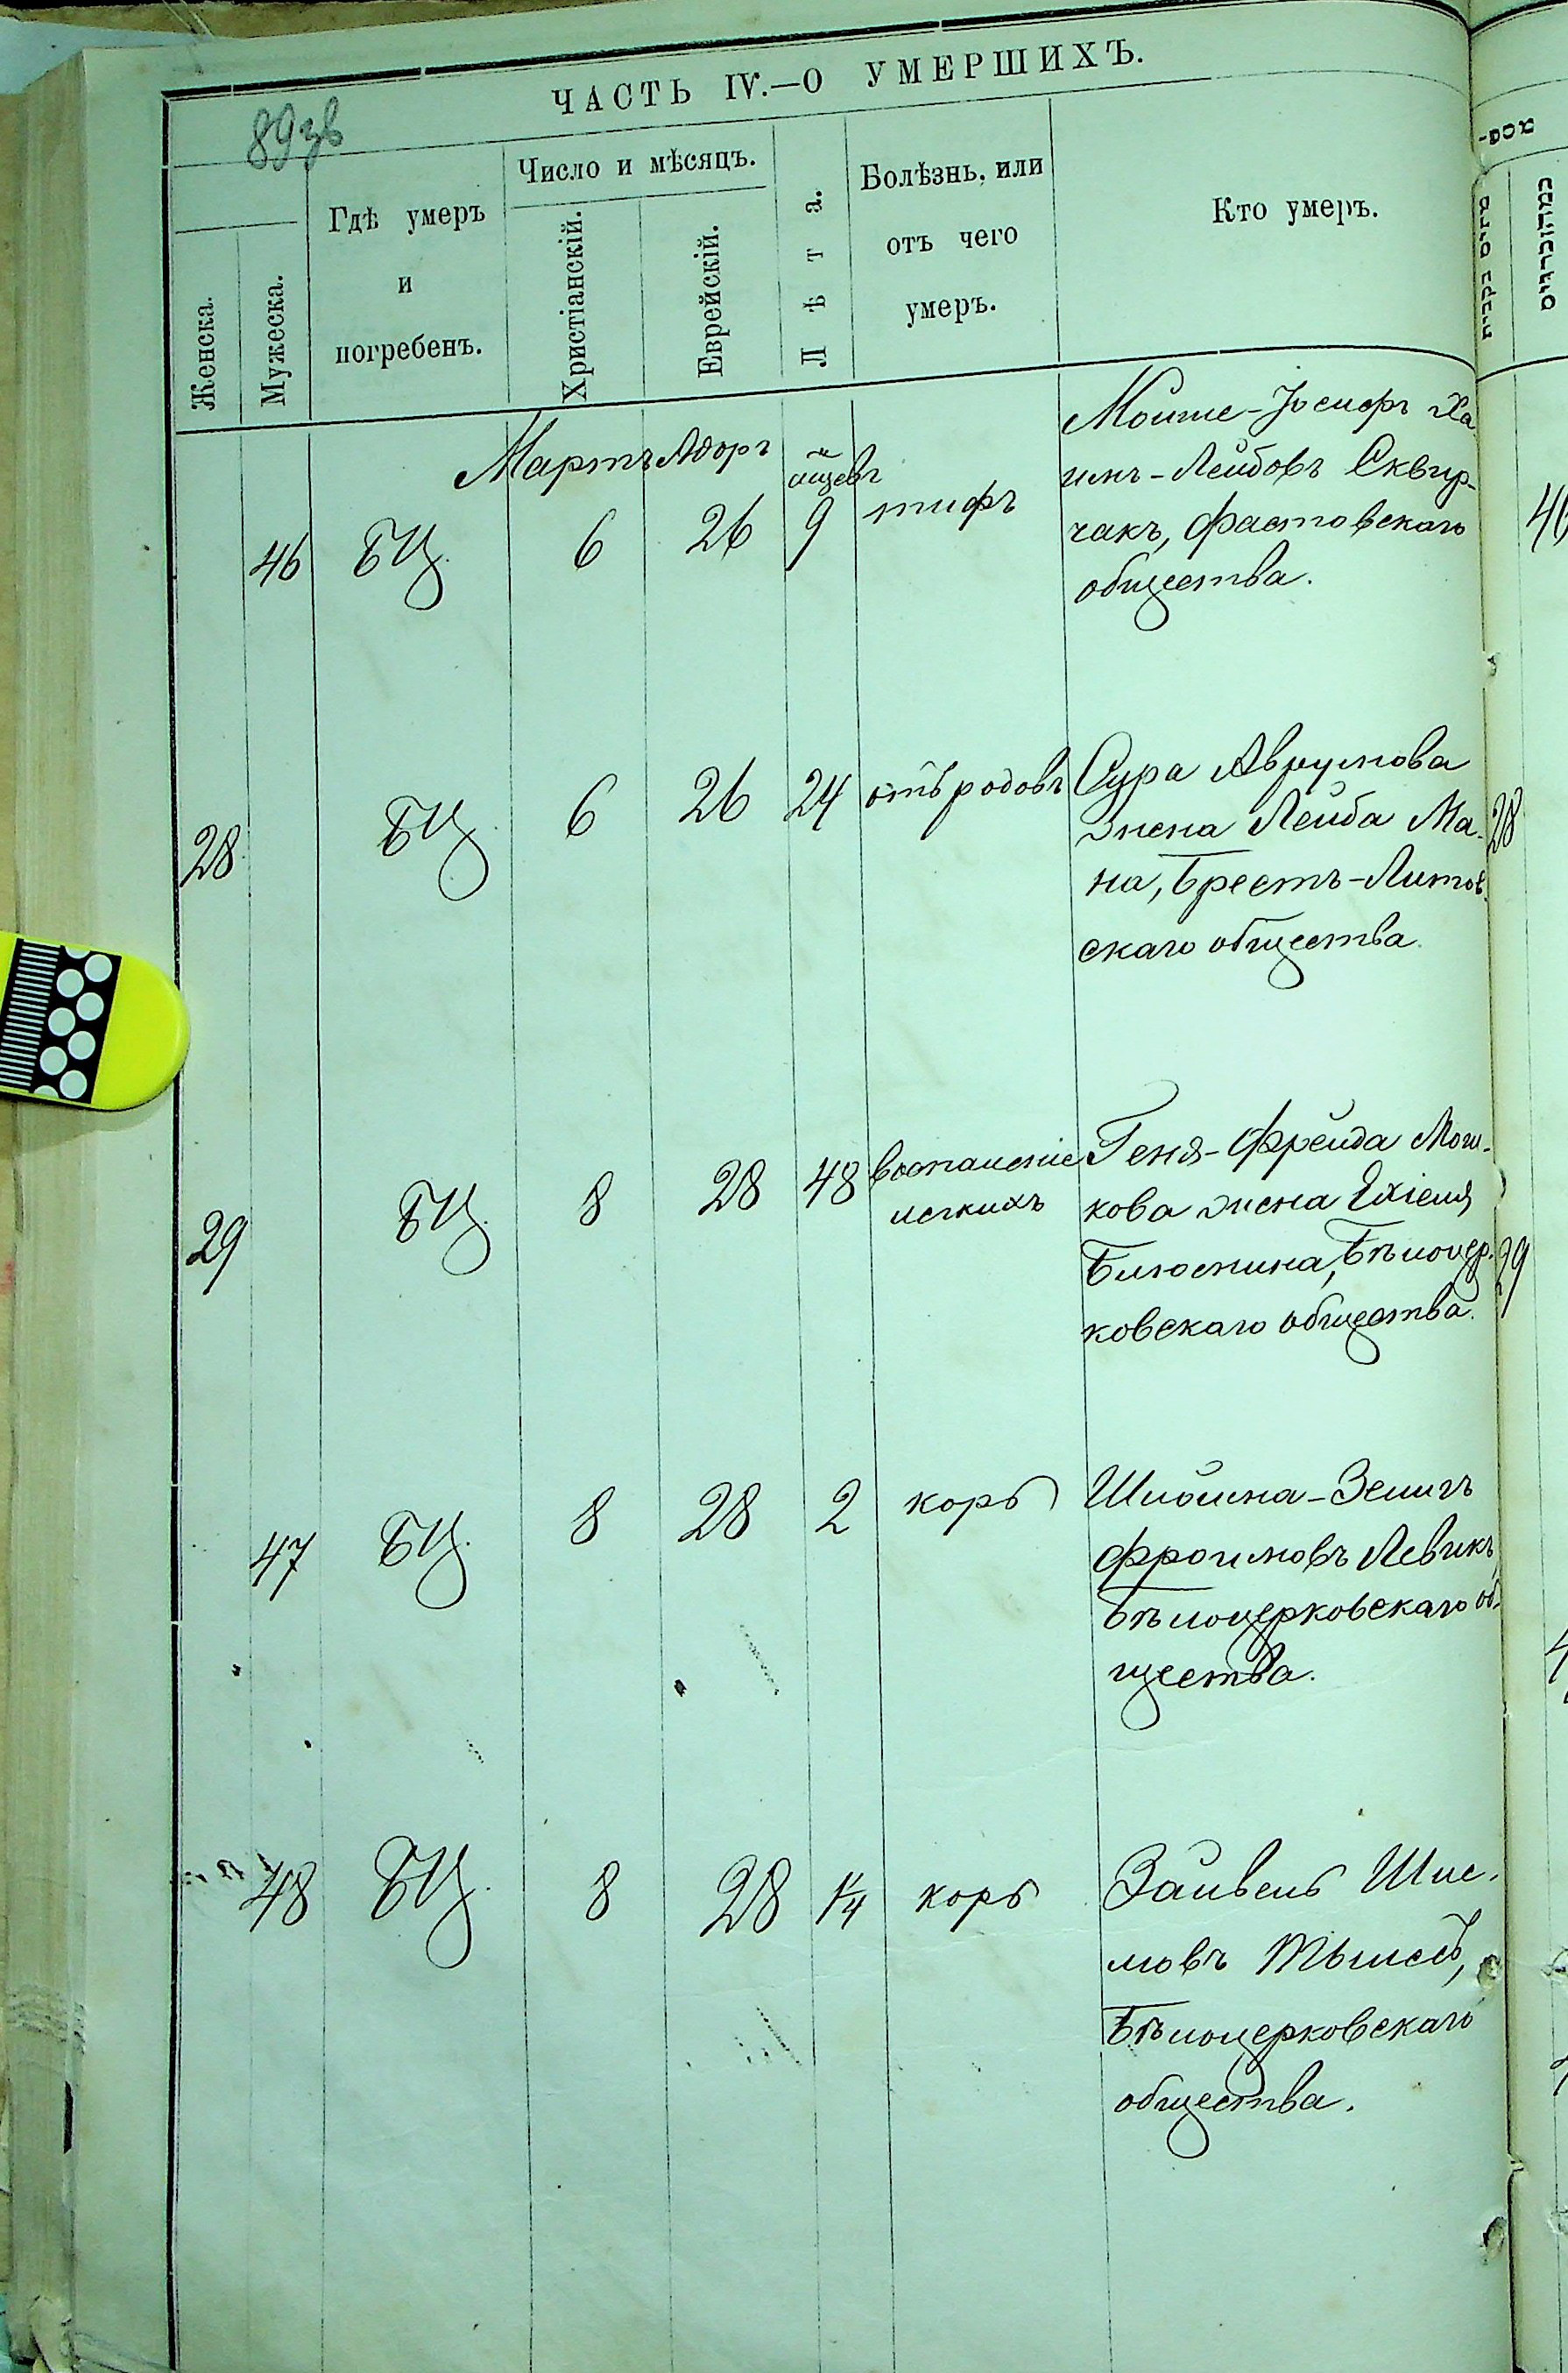 89 зв
ЧАСТЬ IV.—О УМЕРШИХЪ.
Женска.
Мужеска.
Гдѣ умеръ
и
погребенъ.
Число и мѣсяцъ.
Христіанскій.
Еврейскій.
Лѣта.
Болѣзнь, или
отъ чего
умеръ.
Кто умеръ.
Мартъ Адоръ
46 БЦ. 6 26 9 тифъ
Мошко-Іосифъ Ха-
имъ-Лейбовъ Сквир-
чакъ, Фастовскаго
общества.
28 БЦ. 6 26 24 отъ родовъ
Сура Аврумова
жена Лейба Ма-
на, Брестъ-Литов-
скаго общества.
28
29 БЦ. 8 28 48 воспаленіе
легкихъ
Геня-Фрейда Мош-
кова жена Ехіеля
Блюмина, Бѣлоцер-
ковскаго общества.
29
47 БЦ. 8 28 2 корь
Шлойма-Зелигъ
Фроимовъ Левикъ,
Бѣлоцерковскаго об-
щества.
48 БЦ. 8 28 1/4 корь
Зайвель Шле-
мовъ
Бѣлоцерковскаго
общества.